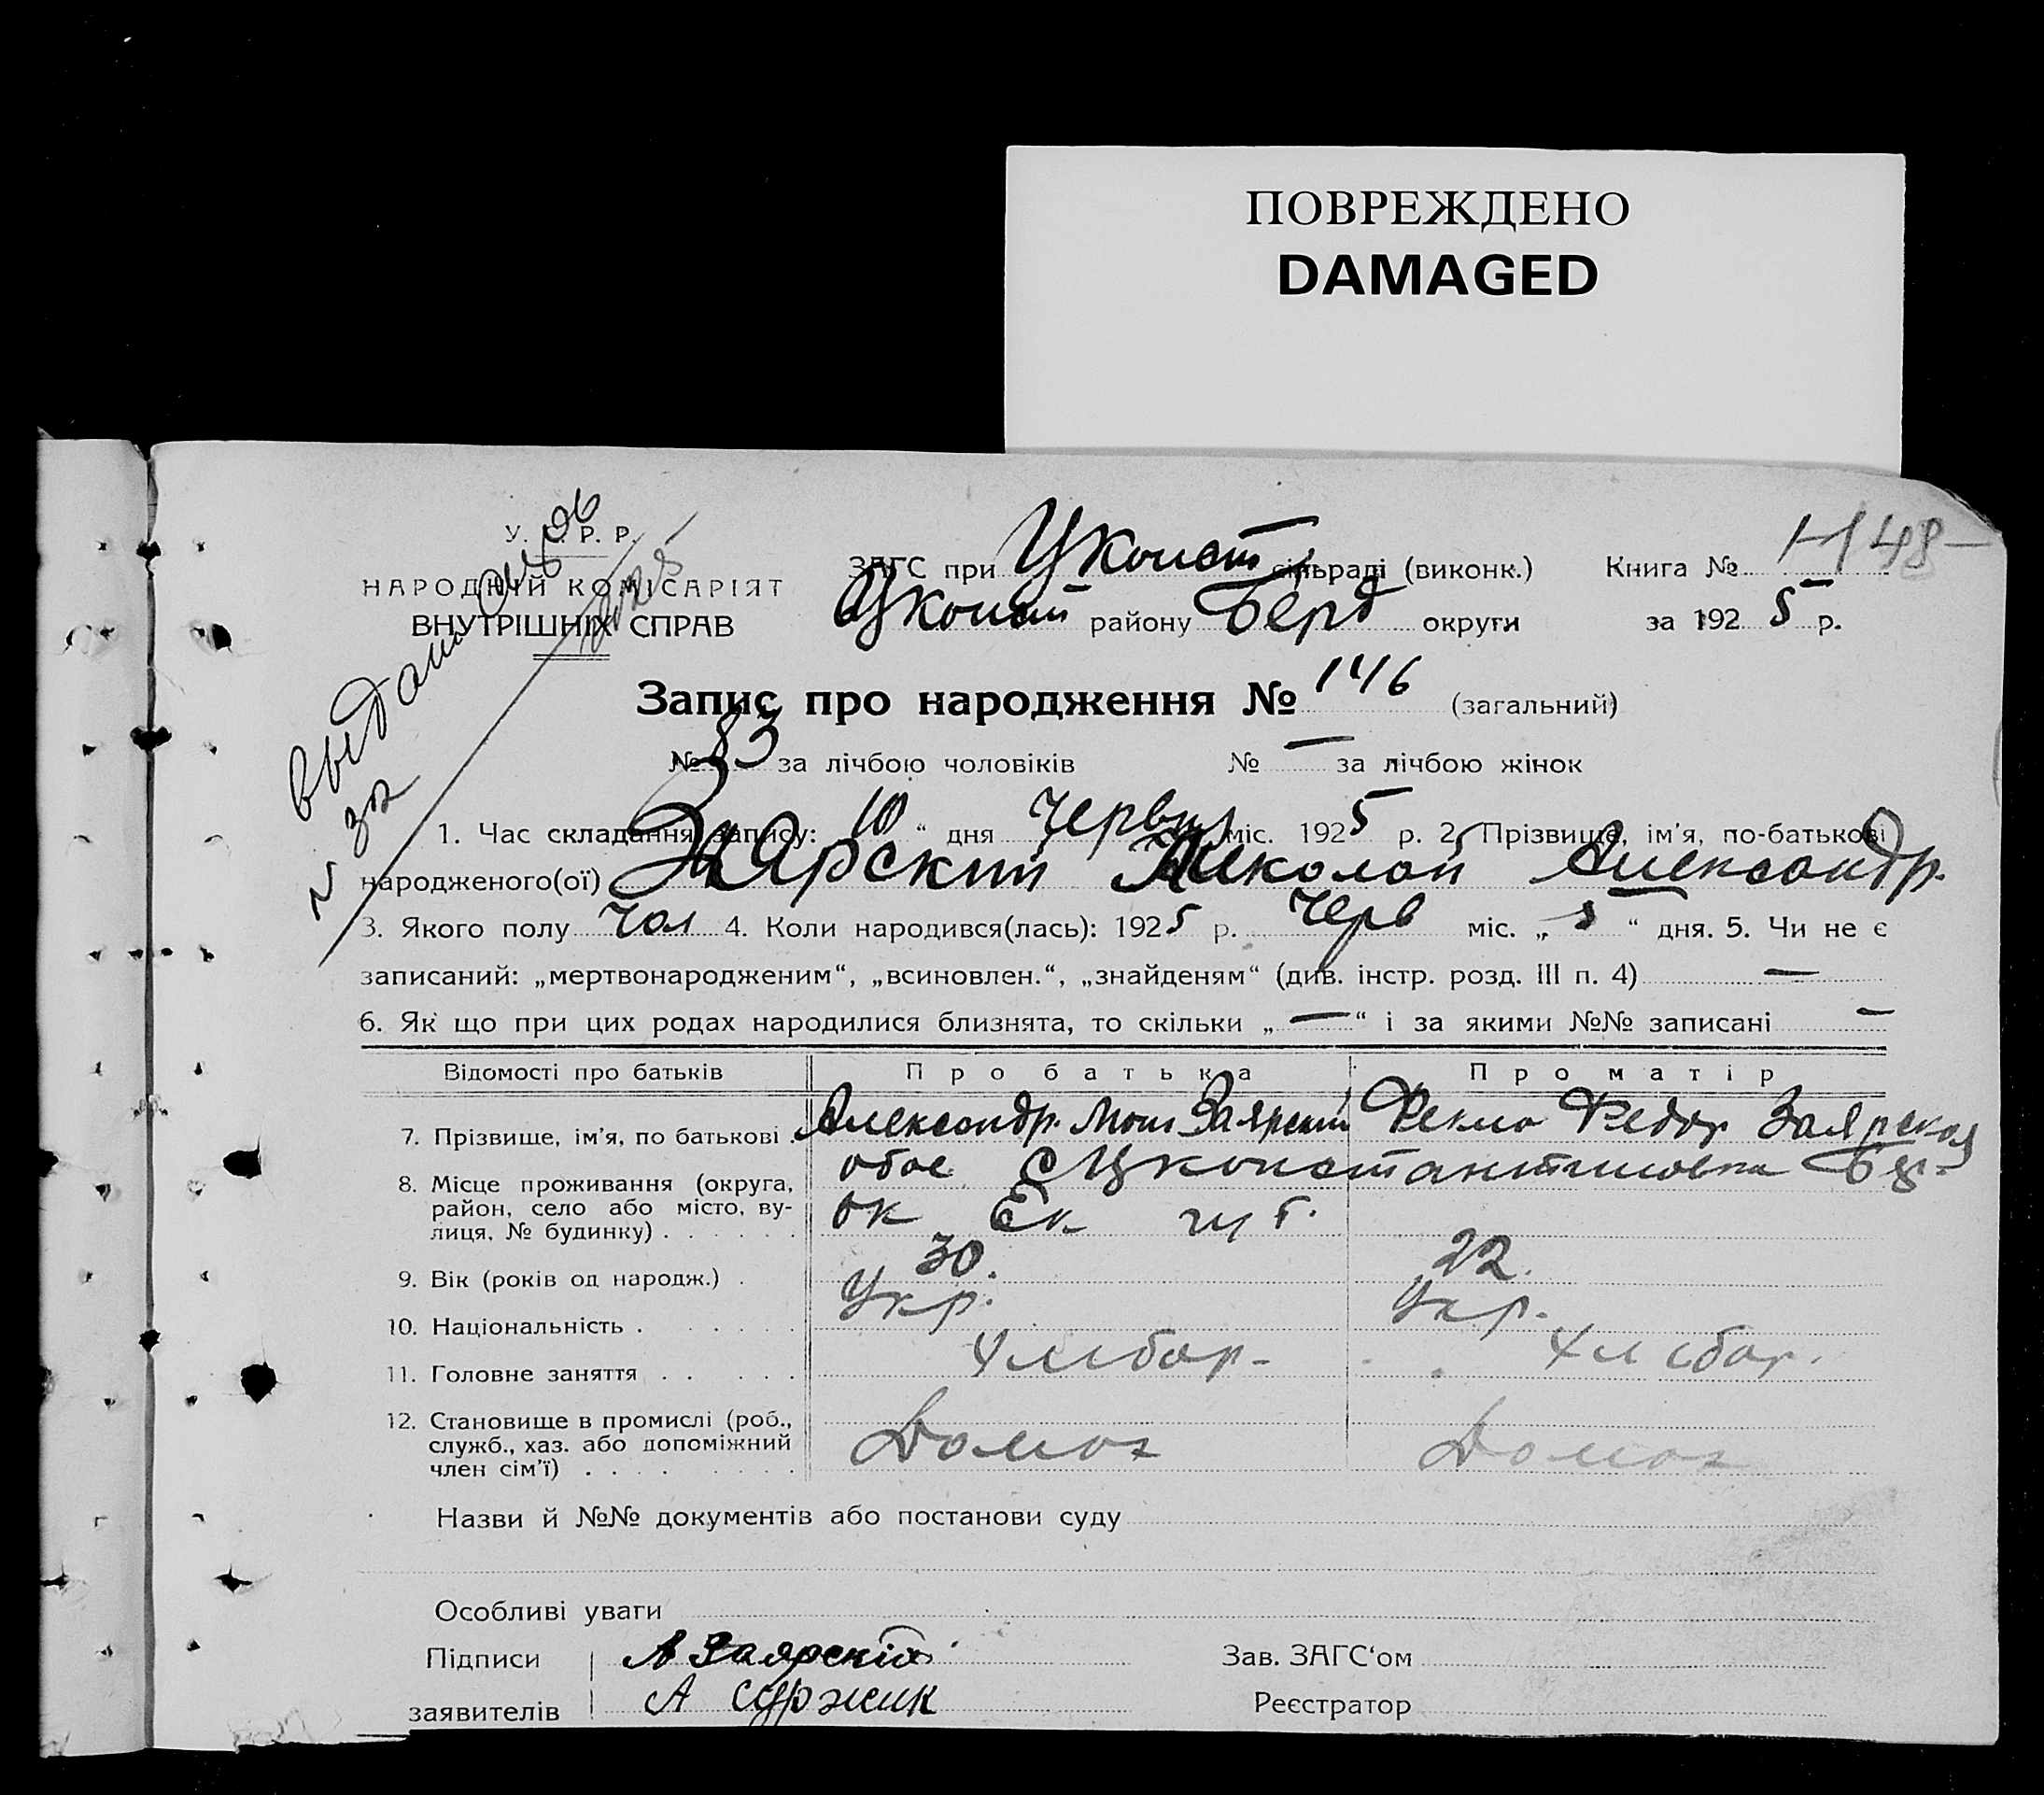 ПОВРЕЖДЕНО
DAMAGED
У. Р. Р.
НАРОДНІЙ КОМІСАРІЯТ
ВНУТРІШНІХ СПРАВ
выдан
№ 32
ЗАГС при ЦКонст сільраді (виконк.) Книга №
ЦКонст району Берд округи за 1925 р.
Запис про народження № 146 (загальний)
№ 83 за лічбою чоловіків № — за лічбою жінок
1. Час складання запису: 10 “ дня Червня міс. 1925 р. 2. Прізвище, ім’я, по-батькові
народженого(ої) Заярский Николай Александр.
3. Якого полу Чол 4. Коли народився(лась): 1925 р. Черв міс. „ 5 “ дня. 5. Чи не є
записаний: „мертвонародженим“, „всиновлен.“, „знайденям“ (див. інстр. розд. III п. 4) —
6. Як що при цих родах народилися близнята, то скільки „ — “ і за якими №№ записані —
Відомості про батьків Про батька Про матір
7. Прізвище, ім’я, по батькові . Александр. Заярский Фекла Федор Заярская
8. Місце проживання (округа, район, село або місто, вулиця, № будинку) . . . . . . обое с Цконстантиновка
ок Ек
9. Вік (років од народж.) . 30. 22.
10. Національність . . . . . . Укр. Укр.
11. Головне заняття . . . . . Хлібор- Хлібор.
12. Становище в промислі (роб., служб., хаз. або допоміжний член сім’ї) . . . . . . . . Домог Домог
Назви й №№ документів або постанови суду
Особливі уваги
Підписи А Заярскій Зав. ЗАГС‘ом
заявителів А Суржик Реєстратор